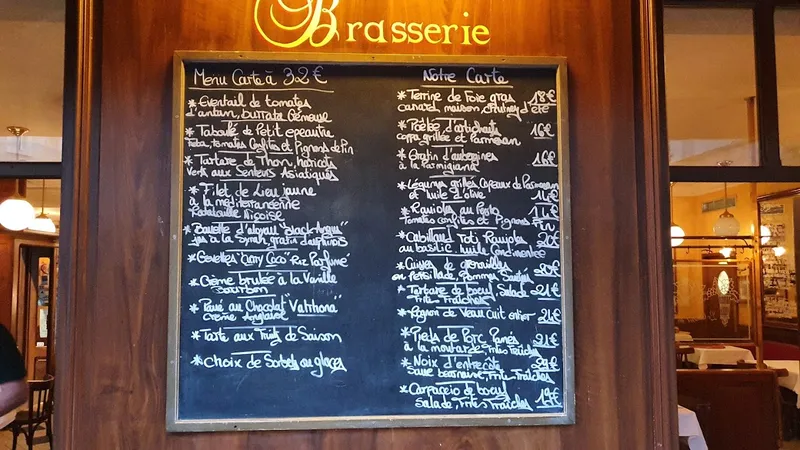 Brasserie
Menu Carte à 32€
* Eventail de tomates
d'antan, burrata crémeuse
* Taboulé de Petit epeautre
Feta, tomates confites et Pignons de Pin
* Tartare de Thon, haricots
Verts aux Senteurs Asiatiques
* Filet de Lieu jaune
à la méditerranéenne
Ratatouille Niçoise
* Bavette d'aloyau "Black-Angus"
jus à la Syrah gratin dauphinois
* Gambettes "Curry Coco" Riz Parfumé
* Crème brulée à la Vanille
Bourbon
* Pavé au Chocolat "Valrhona"
Crème Anglaise
* Tarte aux Fruits de Saison
* Choix de Sorbets ou glaces
Notre Carte
* Terrine de Foie gras 18€
canard maison, chutney d'été
* Poêlée d'artichauts 16€
coppa grillée et Parmesan
* Gratin d'aubergines 16€
à la Parmigiana
* Légumes grillés Copeaux de Parmesan
et huile d'olive
* Ravioles au Pesto
Tomates confites et Pignons Pin
* Cabillaud Roti Ravioles 20€
au basilic huile Condimentée
* Cuisses de grenouilles 20€
en Persillade, Pomme
* Tartare de boeuf, Salade 21€
Frites Fraîches
* Rognon de Veau cuit entier 24€
* Pieds de Porc Panés 21€
à la moutarde, Frites Fraîches
* Noix d'entrecôte
Sauce bearnaise, Frites Fraîches
* Carpaccio de boeuf 19€
Salade, Frites Fraîches